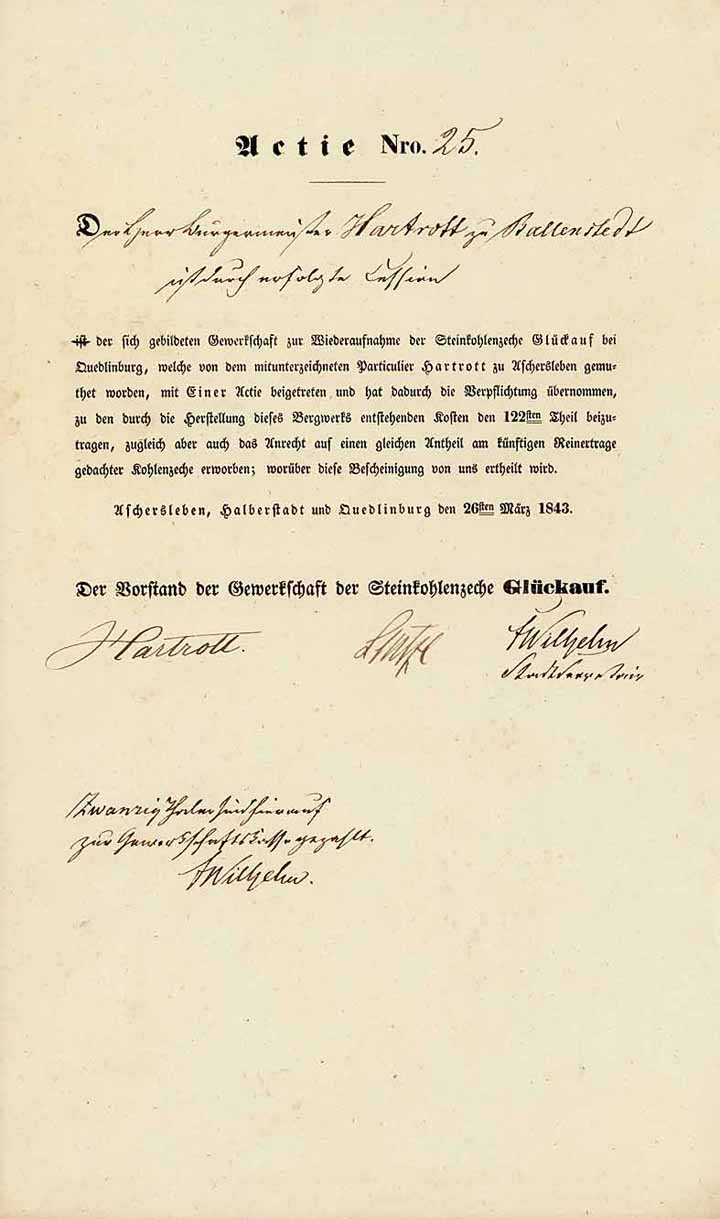 Actie Nro. 25.
Der Herr Bürgermeister Hartrott zu Ballenstedt
ist durch erfolgte Cession
ist der sich gebildeten Gewerkschaft zur Wiederaufnahme der Steinkohlenzeche Glückauf bei
Quedlinburg, welche von dem mitunterzeichneten Particulier Hartrott zu Aschersleben gemu-
thet worden, mit Einer Actie beigetreten und hat dadurch die Verpflichtung übernommen,
zu den durch die Herstellung dieses Bergwerks entstehenden Kosten den 122sten Theil beizu-
tragen, zugleich aber auch das Anrecht auf einen gleichen Antheil am künftigen Reinertrage
gedachter Kohlenzeche erworben; worüber diese Bescheinigung von uns ertheilt wird.
Aschersleben, Halberstadt und Quedlinburg den 26sten März 1843.
Der Vorstand der Gewerkschaft der Steinkohlenzeche Glückauf.
Hartrott. Wilhelm
Stadtsecretair
Zwanzig Thaler sind hierauf
zur Gewerkschaftskasse gezahlt.
Wilhelm.